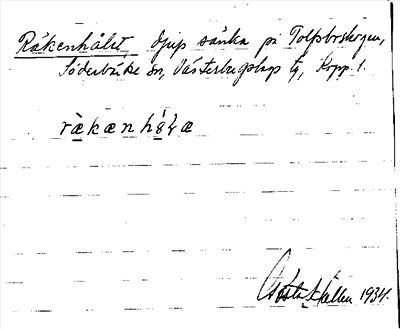 Råkenhålet, djup sänka på Tolfsboskogen,
Söderbärke sn, Västerbergslags tg, Kopp. l.
ràkænhólæ
Gösta Sjöllin 1934.